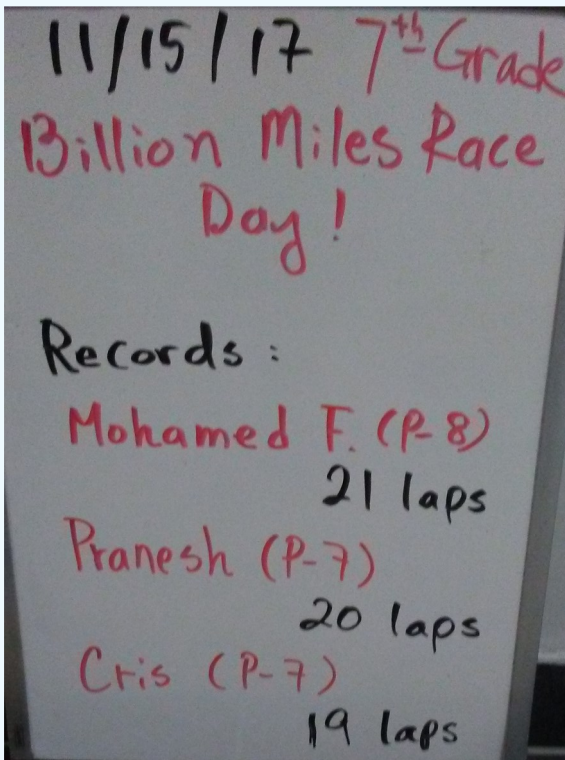 11/15/17 7th Grade
Billion Miles Race
Day!
Records:
Mohamed F. (P-8)
21 laps
Pranesh (P-7)
20 laps
Cris (P-7)
19 laps